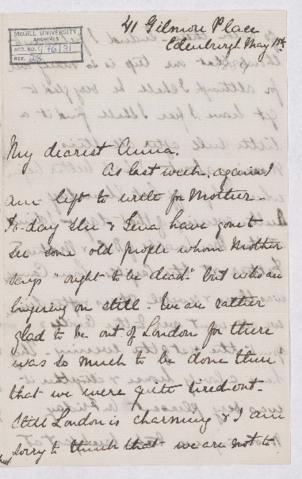 McGILL UNIVERSITY
ARCHIVES
ACC. NO.
REF.
41 Gilmore Place
Edinburgh May
My dearest Anna.
As last week, again I
am left to write for Mother.
To-day she & Eva have gone to
see some old people whom Mother
says "ought to be dead" but who are
lingering on still. We are rather
glad to be out of London for there
was so much to be done there
that we were quite tired out.
Still London is charming & I am
sorry to think that we are not to